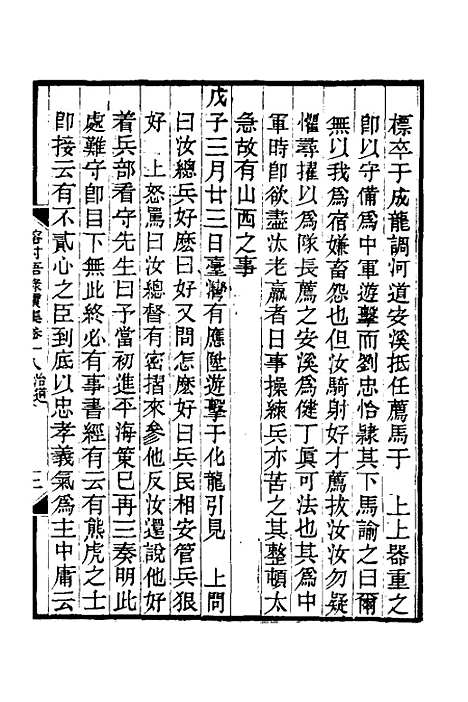 標卒于成龍調河道安溪抵任薦馬于　上上器重之
卽以守備爲中軍遊擊而劉忠恰隷其下馬諭之曰爾
無以我爲宿嫌畜怨也但汝騎射好才薦拔汝汝勿疑
懼尋擢以爲隊長薦之安溪爲健丁眞可法也其爲中
軍時卽欲盡汰老羸者日事操練兵亦苦之其整頓太
急故有山西之事
戊子三月廿三日臺灣有應陞遊擊于化龍引見　上問
曰汝總兵好麽曰好又問怎麽好曰兵民相安管兵狠
好　上怒罵曰汝總督有密摺來參他反汝還說他好
着兵部看守先生曰予當初進平海策已再三奏明此
處難守卽目下無此終必有事書經有云有熊虎之士
卽接云有不貳心之臣到底以忠孝義氣爲主中庸云
榕村語錄續集卷十八治道
三